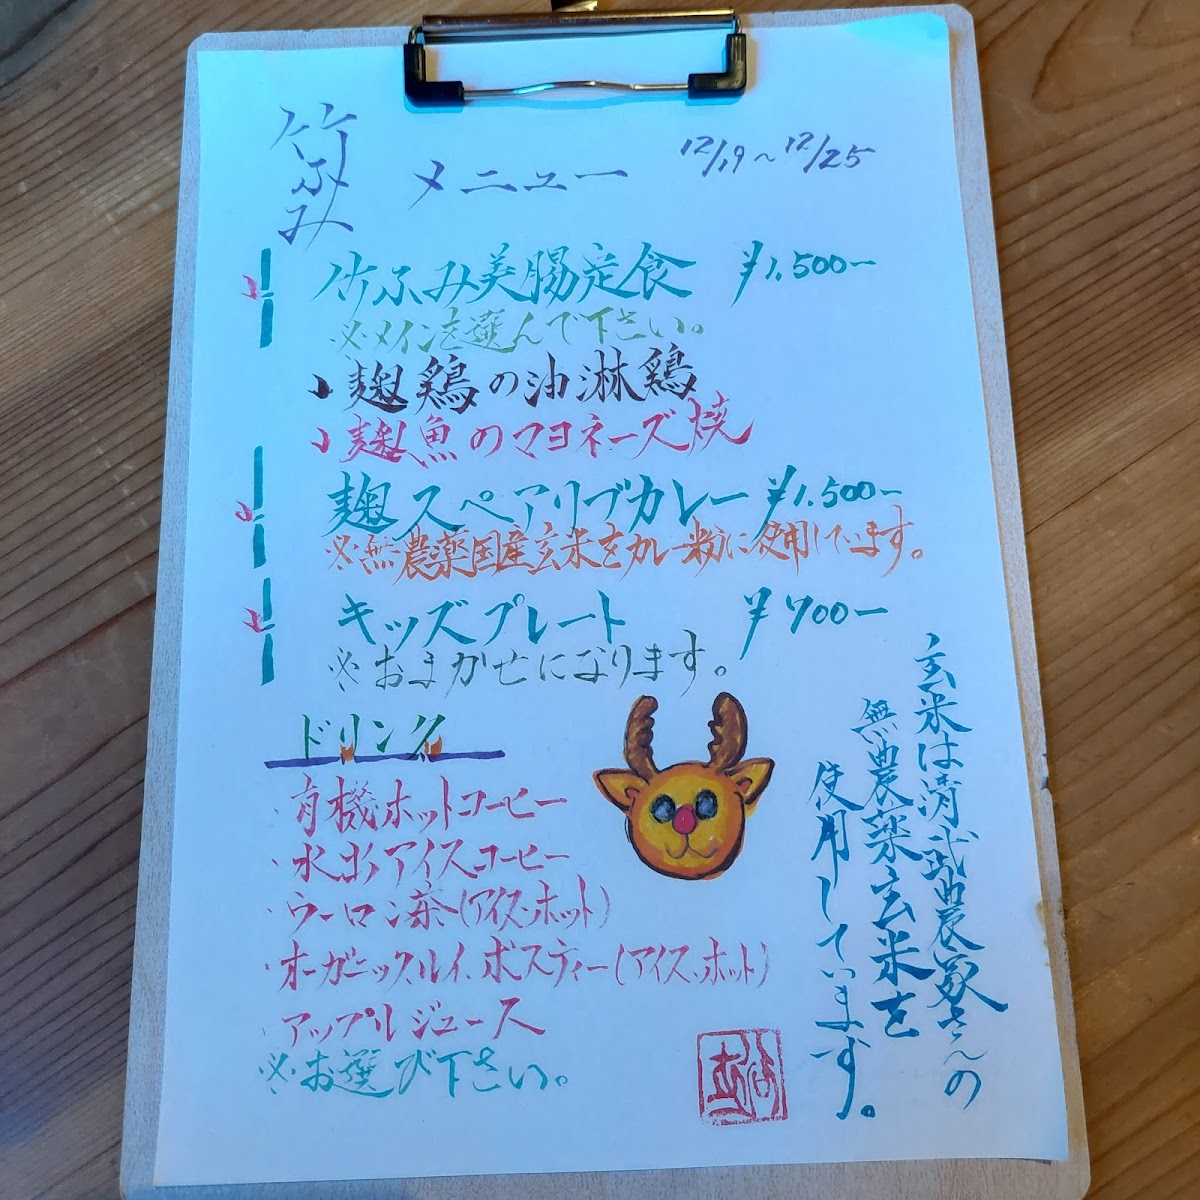 竹ふみ
メニュー
12/19〜12/25
竹ふみ美腸定食 ¥1,500ー
※メインを選んで下さい。
麹鶏の油淋鶏
麹魚のマヨネーズ焼
麹スペアリブカレー ¥1,500ー
※無農薬国産玄米をカレー粉に使用しています。
キッズプレート ¥700ー
※おまかせになります。
ドリンク
・有機ホットコーヒー
・水出アイスコーヒー
・ウーロン茶(アイス、ホット)
・オーガニックルイボスティー(アイス、ホット)
・アップルジュース
※お選び下さい。
玄米は清武農家さんの
無農薬玄米を
使用しています。